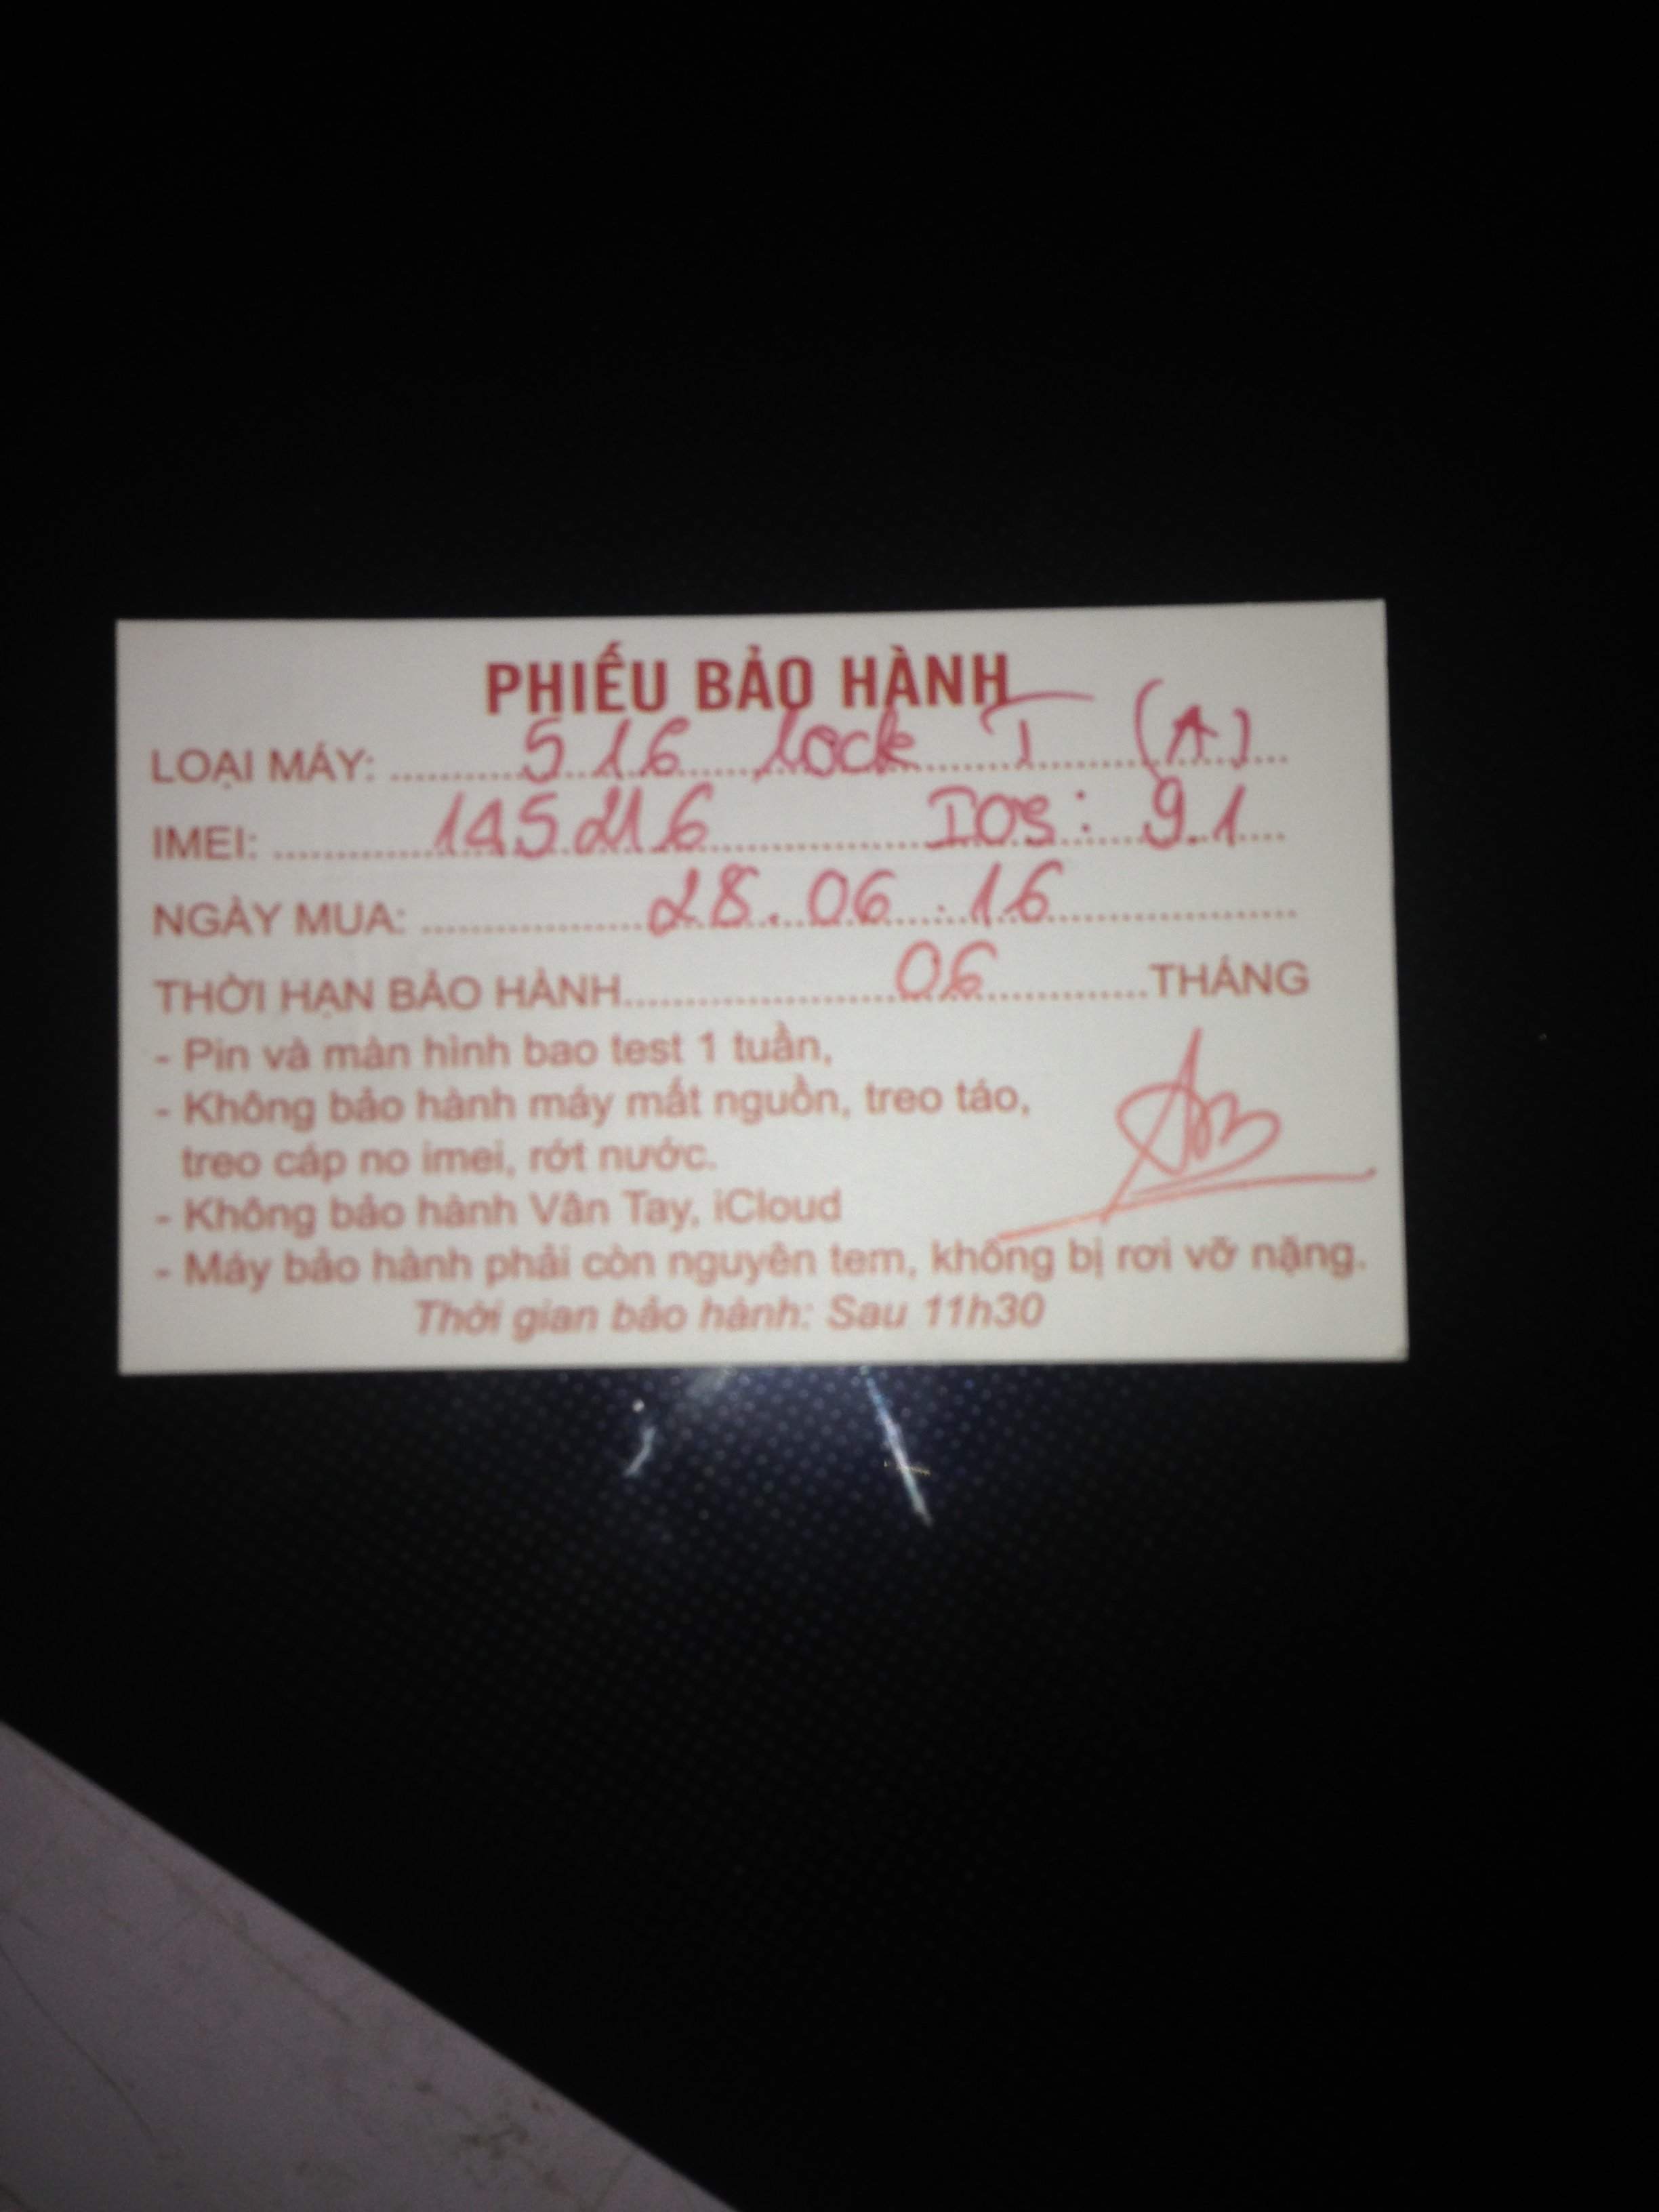 PHIẾU BẢO HÀNH
LOẠI MÁY: 516 lock T (A)
IMEI: 145216 IOS: 9.1
NGÀY MUA: 28.06.16
THỜI HẠN BẢO HÀNH 06 THÁNG
- Pin và màn hình bao test 1 tuần,
- Không bảo hành máy mất nguồn, treo táo,
treo cáp no imei, rớt nước.
- Không bảo hành Vân Tay, iCloud
- Máy bảo hành phải còn nguyên tem, không bị rơi vỡ nặng.
Thời gian bảo hành: Sau 11h30